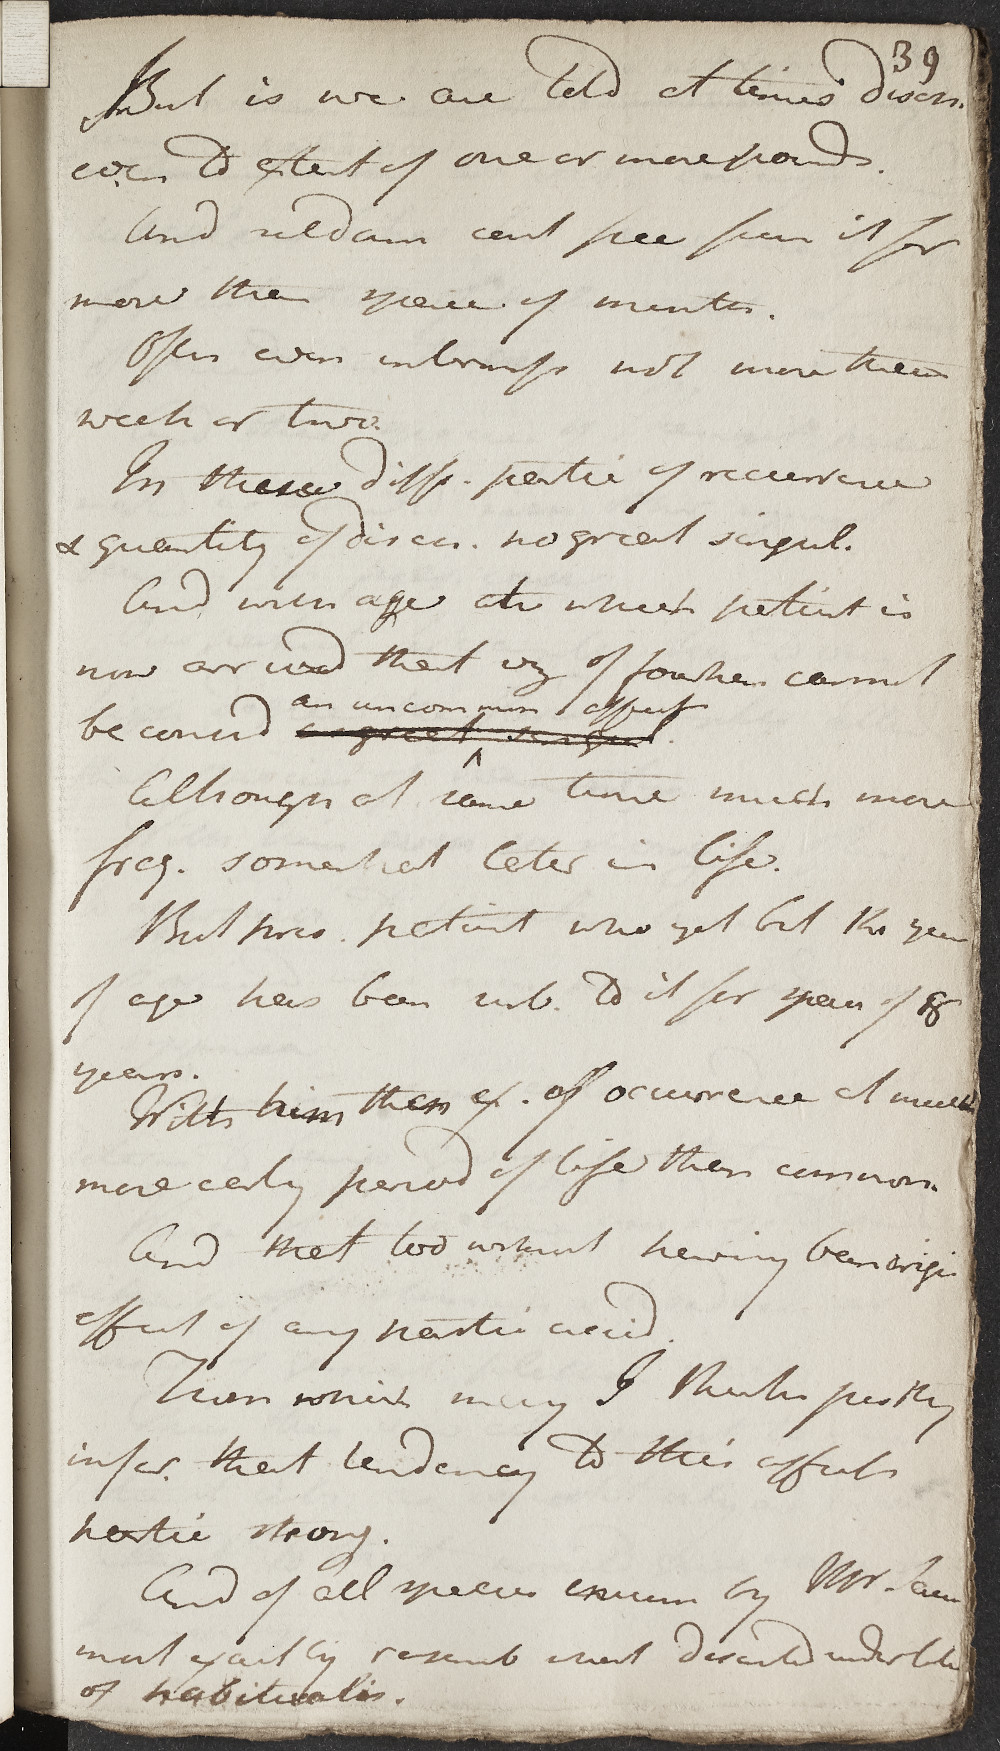 39
But is we are told at times discn.
even to extent of one or more pounds.
And seldom cont free from it for
more than space of months.
Often even intermiss not more than
week or two.
In these diff. partic of recurrence
& quantity of discn. no great singul.
And when age at which patient is
now arrived that viz of fourher cannot
be consid an uncommon affect
a great singul.
Although at same time much more
freq. somewhat later in life.
But pres. patient who yet but the year
of age has been sub. to it for space of 8
years.
With him then ex. of occurrence at much
more early period of life than common.
And that too without having been origi
effect of any partic accid.
From which may I think justly
infer that tendency to this affect
partic strong.
And of all species enum by Mr. Sau
most exactly resemb what descrid under title
of habitualis.